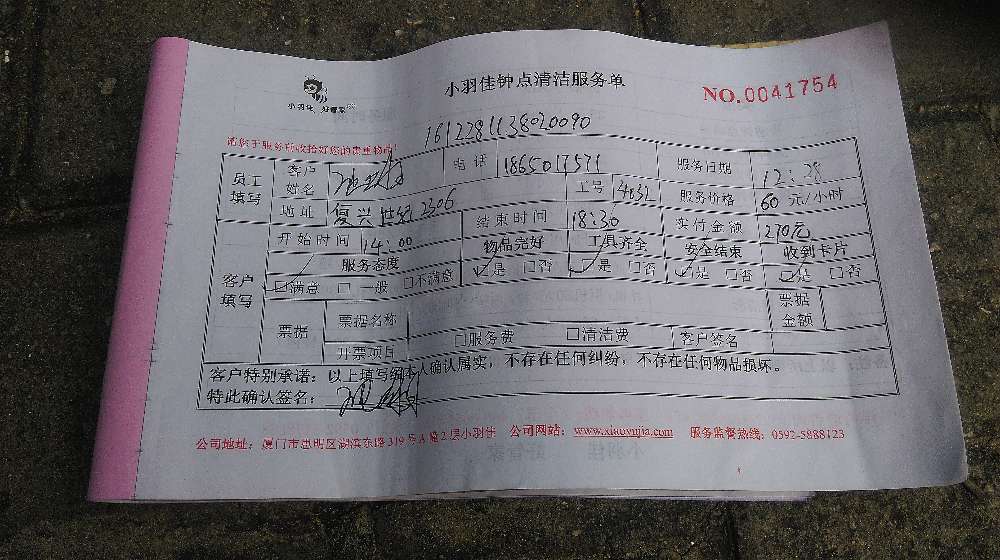 小羽佳钟点清洁服务单
NO.0041754
小羽佳 好管家
1612281138020090
请您于服务前收拾好您的贵重物品!
员工填写 客户姓名 电话 1865017571 服务日期 12:28
地址 复兴世纪2306 工号 4032 服务价格 60 元/小时
客户填写 开始时间 14:00 结束时间 18:30 实付金额 270元
服务态度 物品完好 工具齐全 安全结束 收到卡片
□满意 □一般 □不满意 □是 □否 □是 □否 □是 □否 □是 □否
票据 票据名称 票据金额
开票项目 □服务费 □清洁费 客户签名
客户特别承诺:以上填写经本人确认属实,不存在任何纠纷,不存在任何物品损坏。
特此确认签名:
公司地址:厦门市思明区湖滨东路319号A幢2层小羽佳 公司网站:www.xiaoyujia.com 服务监督热线:0592-5888123